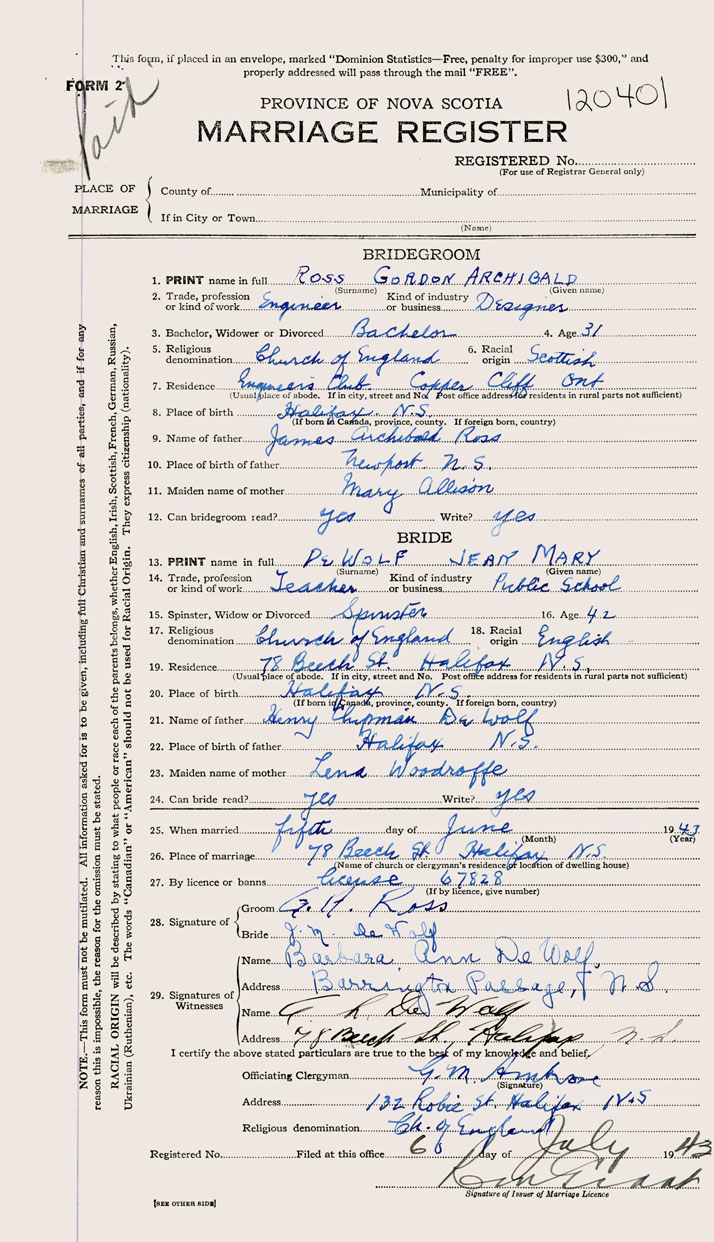 This form, if placed in an envelope, marked "Dominion Statistics—Free, penalty for improper use $300," and
properly addressed will pass through the mail "FREE".
FORM 2
Paid
120401
PROVINCE OF NOVA SCOTIA
MARRIAGE REGISTER
REGISTERED No.
(For use of Registrar General only)
PLACE OF MARRIAGE
County of Municipality of
If in City or Town
(Name)
BRIDEGROOM
1. PRINT name in full ROSS GORDON ARCHIBALD
(Surname) (Given name)
2. Trade, profession or kind of work Engineer Kind of industry or business Designer
3. Bachelor, Widower or Divorced Bachelor 4. Age 31
5. Religious denomination Church of England 6. Racial origin Scottish
7. Residence Engineers Club Copper Cliff Ont
(Usual place of abode. If in city, street and No. Post office address for residents in rural parts not sufficient)
8. Place of birth Halifax N.S.
(If born in Canada, province, county. If foreign born, country)
9. Name of father James Archibald Ross
10. Place of birth of father Newport N.S.
11. Maiden name of mother Mary Allison
12. Can bridegroom read? yes Write? yes
BRIDE
13. PRINT name in full DE WOLF JEAN MARY
(Surname) (Given name)
14. Trade, profession or kind of work Teacher Kind of industry or business Public School
15. Spinster, Widow or Divorced Spinster 16. Age 42
17. Religious denomination Church of England 18. Racial origin English
19. Residence 78 Beech St. Halifax N.S.
(Usual place of abode. If in city, street and No. Post office address for residents in rural parts not sufficient)
20. Place of birth Halifax N.S.
(If born in Canada, province, county. If foreign born, country)
21. Name of father Henry Chipman De Wolf
22. Place of birth of father Halifax N.S.
23. Maiden name of mother Lena Woodroffe
24. Can bride read? yes Write? yes
25. When married fifth day of June 1943
(Month) (Year)
26. Place of marriage 78 Beech St. Halifax N.S.
(Name of church or clergyman's residence or location of dwelling house)
27. By licence or banns license 67828
(If by licence, give number)
28. Signature of
Groom G. A. Ross
Bride J. M. de Wolf
29. Signatures of Witnesses
Name Barbara Ann De Wolf,
Address Barrington Passage, N.S.
Name De Wolf
Address 78 Beech St, Halifax N.S.
I certify the above stated particulars are true to the best of my knowledge and belief.
Officiating Clergyman G. M. Ambrose
(Signature)
Address 132 Robie St. Halifax N.S
Religious denomination Ch. of England
Registered No. Filed at this office 6 day of July 1943
Signature of Issuer of Marriage Licence
[SEE OTHER SIDE]
NOTE.—This form must not be mutilated. All information asked for is to be given, including full Christian and surnames of all parties, and if for any
reason this is impossible, the reason for the omission must be stated.
RACIAL ORIGIN will be described by stating to what people or race each of the parents belongs, whether English, Irish, Scottish, French, German, Russian,
Ukrainian (Ruthenian), etc. The words "Canadian" or "American" should not be used for Racial Origin. They express citizenship (nationality).